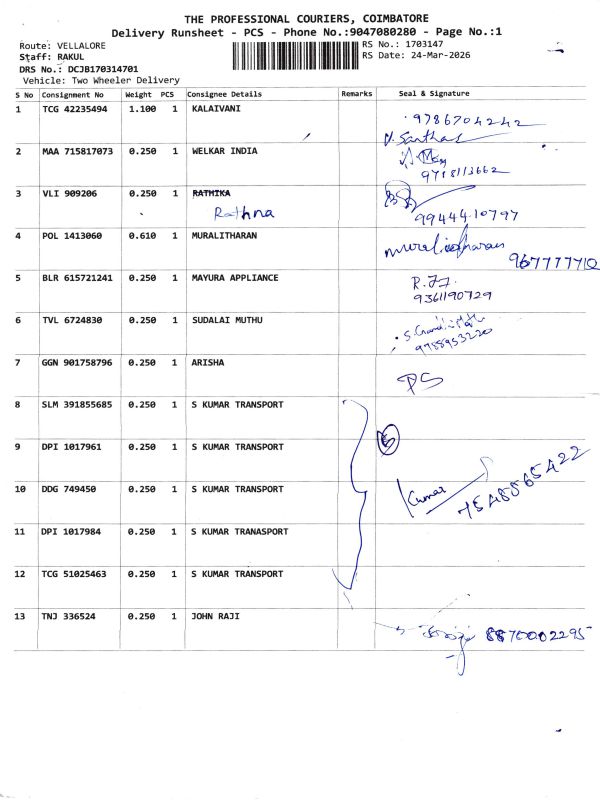 THE PROFESSIONAL COURIERS, COIMBATORE
Delivery Runsheet - PCS - Phone No.:9047080280 - Page No.:1
Route: VELLALORE
RS No.: 1703147
Staff: RAKUL
RS Date: 24-Mar-2026
DRS No.: DCJB170314701
Vehicle: Two Wheeler Delivery
S No Consignment No Weight PCS Consignee Details Remarks Seal & Signature
1 TCG 42235494 1.100 1 KALAIVANI
9786704242
2 MAA 715817073 0.250 1 WELKAR INDIA
3 VLI 909206 0.250 1 RATHIKA
Rathna
9944410797
4 POL 1413060 0.610 1 MURALITHARAN
5 BLR 615721241 0.250 1 MAYURA APPLIANCE
9361190729
6 TVL 6724830 0.250 1 SUDALAI MUTHU
7 GGN 901758796 0.250 1 ARISHA
8 SLM 391855685 0.250 1 S KUMAR TRANSPORT
9 DPI 1017961 0.250 1 S KUMAR TRANSPORT
10 DDG 749450 0.250 1 S KUMAR TRANSPORT
Kumar 7548865422
11 DPI 1017984 0.250 1 S KUMAR TRANASPORT
12 TCG 51025463 0.250 1 S KUMAR TRANSPORT
13 TNJ 336524 0.250 1 JOHN RAJI
8870002295